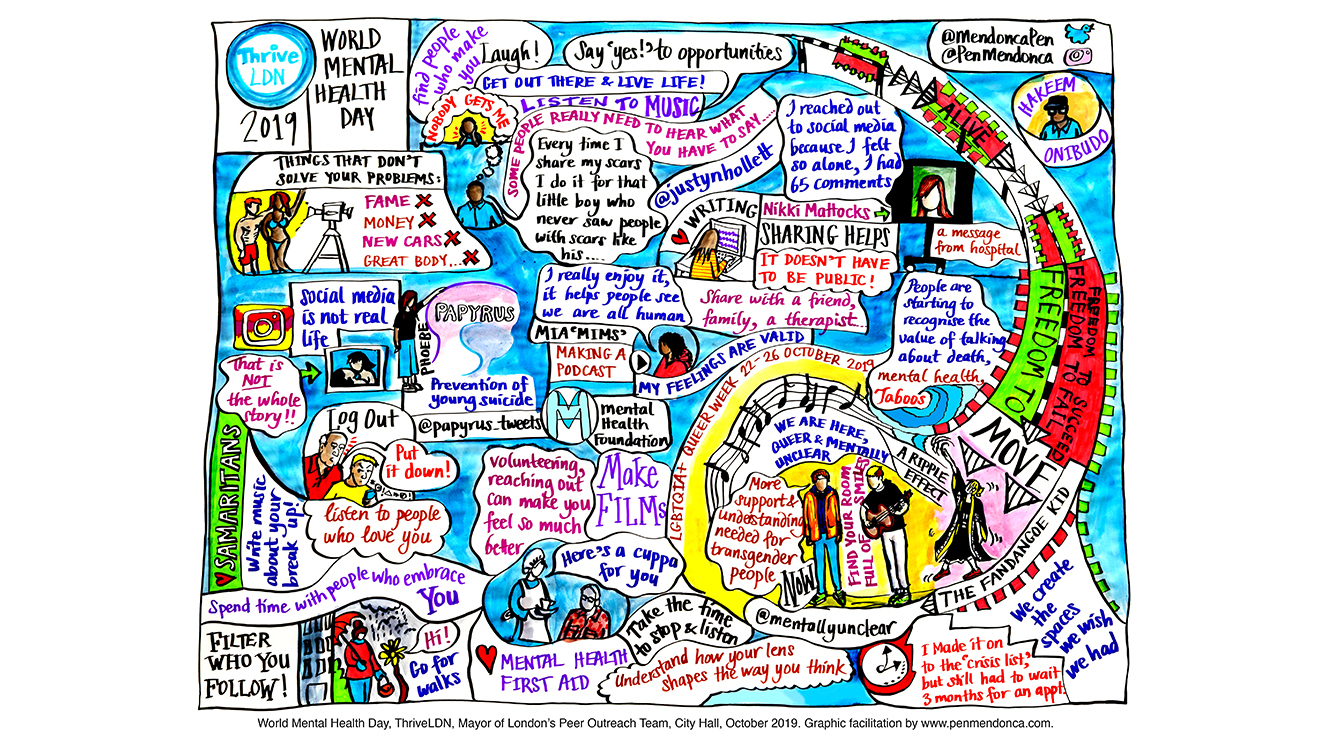 Thrive
LDN
2019
WORLD
MENTAL
HEALTH
DAY
find people
who make
you
Laugh!
Say 'yes!' to opportunities
GET OUT THERE & LIVE LIFE!
LISTEN TO MUSIC
NOBODY GETS ME
SOME PEOPLE REALLY NEED TO HEAR WHAT
YOU HAVE TO SAY....
@justynhollett
Every time I
share my scars
I do it for that
little boy who
never saw people
with scars like
his....
I reached out
to social media
because I felt
so alone, I had
65 comments
@MendoncaPen
@PenMendonca
HAKEEM
ONIBUDO
ALIVE
THINGS THAT DON'T
SOLVE YOUR PROBLEMS:
FAME X
MONEY X
NEW CARS X
GREAT BODY... X
WRITING
Nikki Mattocks
SHARING HELPS
IT DOESN'T HAVE
TO BE PUBLIC!
a message
from hospital
Share with a friend,
family, a therapist...
I really enjoy it,
it helps people see
we are all human
MIA 'MIMS'
MAKING A
PODCAST
MY FEELINGS ARE VALID
Social media
is not real
life
That is
NOT
the whole
story!!
PHOEBE
PAPYRUS
Prevention of
young suicide
@papyrus_tweets
M
mental
Health
Foundation
People are
starting to
recognise the
value of talking
about death,
mental health,
Taboos
FREEDOM TO
FREEDOM TO FAIL
FREEDOM TO SUCCEED
MOVE
A RIPPLE
EFFECT
THE FANDANGOE KID
We create
the
spaces
we wish
we had
LGBTQIA+ QUEER WEEK 22-26 OCTOBER 2019
WE ARE HERE,
QUEER & MENTALLY
UNCLEAR
More
support &
understanding
needed for
transgender
people
NOW
FIND YOUR ROOM
FULL OF SMILES
@mentallyunclear
Log Out
Put
it down!
@!*@!
listen to people
who love you
SAMARITANS
Write music
about your
break up!
Volunteering,
reaching out
can make you
feel so much
better
Make
FILMs
Here's a cuppa
for you
Take the time
to stop & listen
MENTAL HEALTH
FIRST AID
Understand how your lens
shapes the way you think
Spend time with people who embrace
You
FILTER
WHO YOU
FOLLOW!
Hi!
Go for
walks
I Made it on
to the "crisis list,"
but still had to wait
3 months for an appt.
World Mental Health Day, ThriveLDN, Mayor of London's Peer Outreach Team, City Hall, October 2019. Graphic facilitation by www.penmendonca.com.